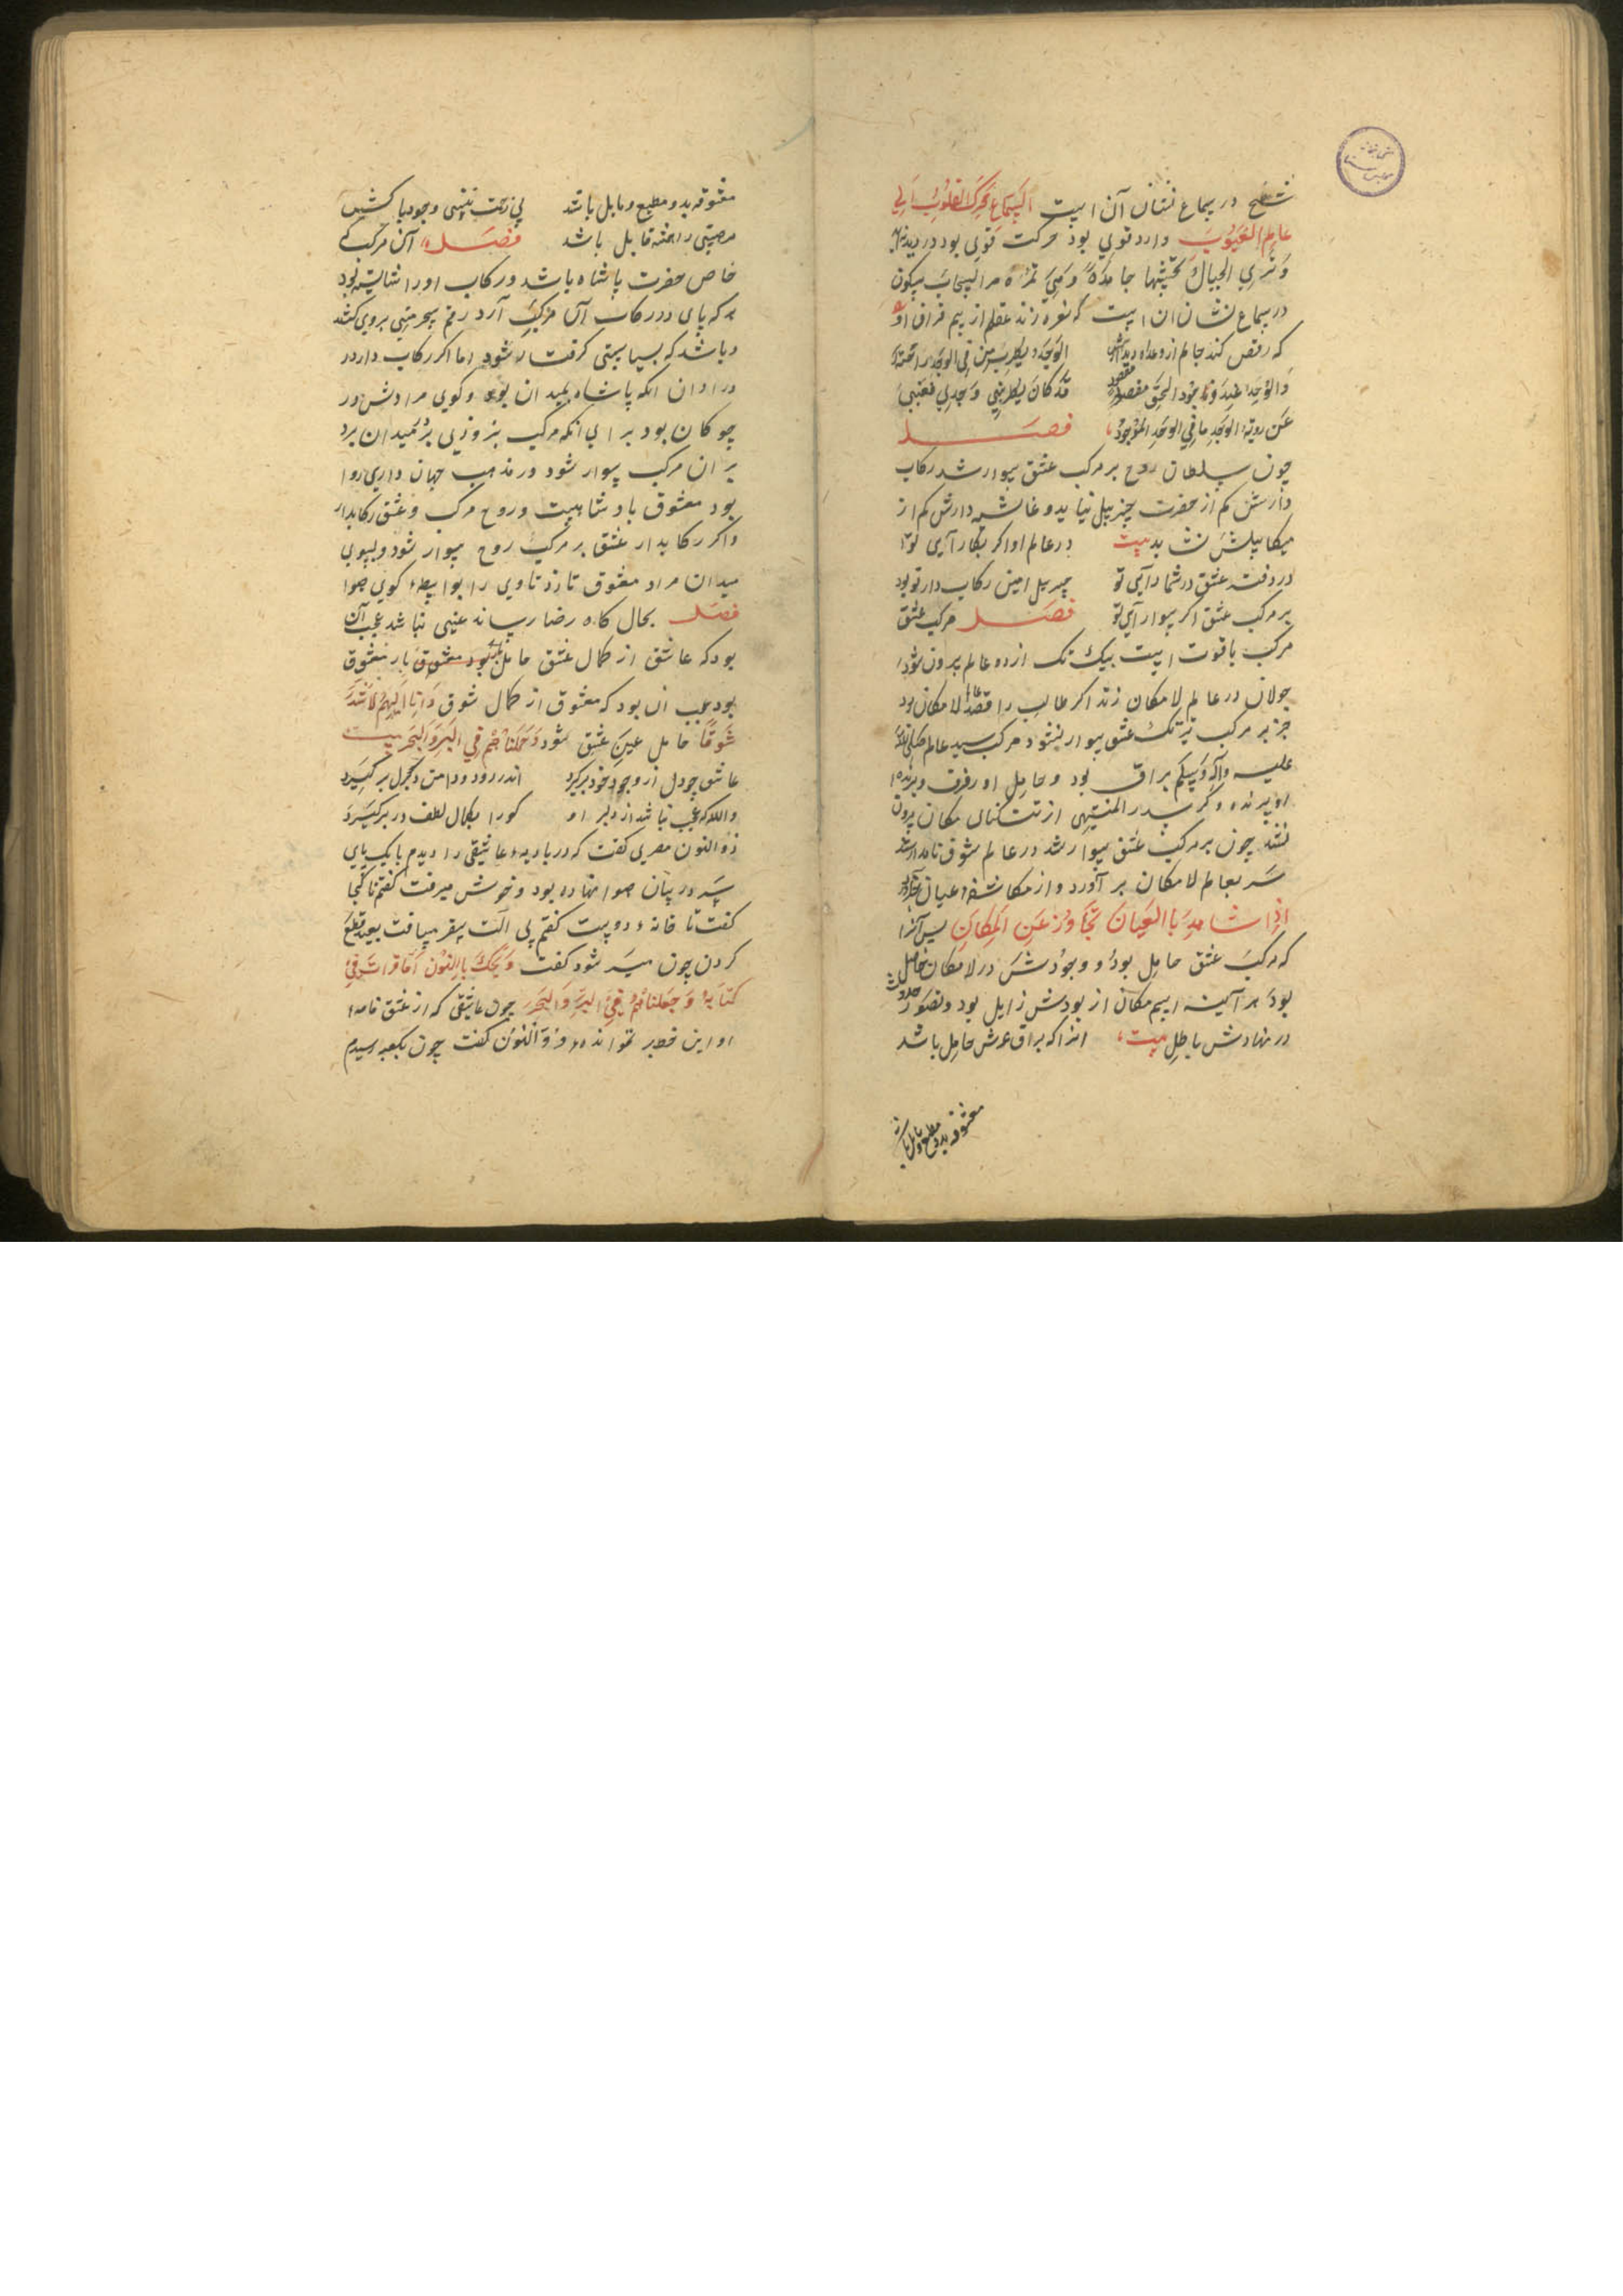 شطح در سماع نشان آن است السماع تحرك القلوب الی
عالم الغیوب وارد قوی بود حرکت قوی بود در دیده
وتری الجبال تحسبها جامدة وهی تمر مر السحاب سکون
در سماع نشان ان است که نعره زند عقلم از بیم فراق او
که رقص کند جانم از وعده دیدارش الوجد یطرب من فی الوجد راحته
والوجد عند وجود الحق مفقود قد کان یطربنی وجدی فغیبنی
عن رویة الوجد ما فی الوجد الموجود فصل
چون سلطان روح بر مرکب عشق سوار شد رکاب
دارش کم از حضرت جبریل نیاید و غاشیه دارش کم از
میکاییلش نشاید بیت در عالم او اکر بکار آیی تو
در دفتر عشق در شمار آیی تو جبریل امین رکاب دار تو بود
بر مرکب عشق اکر سوار آیی تو فصل مرکب عشق
مرکب باقوت است بیک تک از دو عالم برون شود
جولان در عالم لامکان زند اکر طالب را قصد لامکان بود
جز بر مرکب تیز تک عشق سوار نشود مرکب سید عالم صلی الله
علیه وآله وسلم براق بود و حامل او رفرف و برنده
او پرنده و کر سدر المنتهی از تنکنای مکان برون
نشد چون بر مرکب عشق سوار شد در عالم شوق نامدار شد
سر بعالم لامکان بر آورد و از مکاشفه اعیان
اذا شاهد بالعیان تجاوز عن المکان پس آنرا
که مرکب عشق حامل بود و وجودش در لامکان حاصل
بود هر آینه اسم مکان از بودش زایل بود و تصور حدوث
در نهادش باطل بیت انرا که براق عرش حامل باشد
معشوقه بدو مطیع و مایل باشد
معشوقه بدو مطیع و مایل باشد بی زحمت نیستی وجود پاکش
مرصیتی را خنه قابل باشد فصل آن مرکب که
خاص حضرت پاشاه باشد و رکاب او را نشایسته بود
هر که پای در رکاب آن مرکب آرد رقم بیحرمتی بروی کشند
و باشد که بسیاستی کرفتار شود اما اکر رکاب دار در
در اوان انکه پاشاه بمیدان بود و کوی مرادش در
چوکان بود برای انکه مرکب بزودی بمیدان برد
بر ان مرکب سوار شود در مذهب جهان داری روا
بود معشوق بادشاهیست و روح مرکب و عشق رکابدار
و اکر رکابدار عشق بر مرکب روح سوار شود و بسوی
میدان مراد معشوق تازد تا وی را بواسطه کوی هوا
فصل بحال کاه رضا رساند عیبی نباشد عجب آن
بود که عاشق از کمال عشق حامل بار معشوق
بود عجب ان بود که معشوق از کمال شوق وانا الیهم لاشد
شوقا حامل عین عشق شود وحملناهم فی البر والبحر بیت
عاشق چو دل از وجود خود برکیرد اندر دود و دامن دلبر کیرد
والله که عجب نباشد از دلبر او کورا بکمال لطف در برکیرد
ذوالنون مصری کفت که در بادیه عاشقی را دیدم با یک پای
سر در بیابان هوا نهاده بود و خوش میرفت کفتم تا کجا
کفت تا خانه دوست کفتم بی الت سفر مسافت بعید قطع
کردن چون میسر شود کفت ویحک یا ذالنون اما قرات فی
کتابه وحملناهم فی البر والبحر چون عاشقی که از عشق نامه
او این خطبر نخوانده ذوالنون کفت چون بکعبه رسیدم